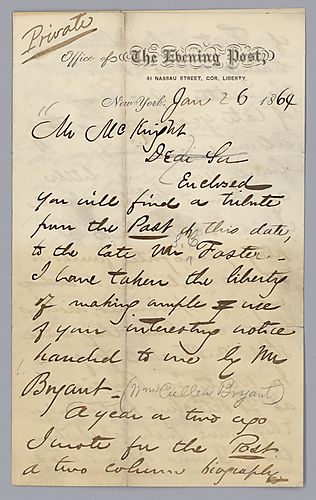 Private
Office of The Evening Post,
41 NASSAU STREET, COR. LIBERTY,
New York, Jan 26 1864
Mr McKnight
Dear Sir
Enclosed
you will find a tribute
from the Post of this date,
to the late Mr Foster -
I have taken the liberty
of making ample use
of your interesting notice
handed to me by Mr
Bryant - (Wm Cullen Bryant)
A year or two ago
I wrote for the Post
a two column biography